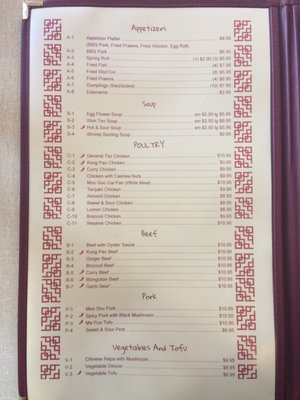 Appetizers
A-1 Appetizer Platter $8.95
(BBQ Pork, Fried Prawns, Fried Wonton, Egg Roll)
A-2 BBQ Pork
A-3 Spring Roll (1) $2.00 (3) $5.95
A-4 Fried Fish
A-5 Fried WonTon
A-6 Fried Prawns
A-7 Dumplings
A-8 Edamame
Soup
S-1 Egg Flower Soup sm $2.00 lg $5.95
S-2 Won Ton Soup sm $2.00 lg
S-3 Hot & Sour Soup sm $2.00 lg $5.95
S-4 Shrimp Sizzling Soup
POULTRY
C-1 General Tso Chicken $10.95
C-2 Kung Pao Chicken $9.95
C-3 Curry Chicken $9.95
C-4 Chicken with Cashew Nuts $9.95
C-5 Moo Goo Gai Pan (White Meat) $10.95
C-6 Teriyaki Chicken $9.95
C-7 Almond Chicken $9.95
C-8 Sweet & Sour Chicken $9.95
C-9 Lemon Chicken $9.95
C-10 Broccoli Chicken $9.95
C-11 Sesame Chicken $10.95
Beef
B-1 Beef with Oyster Sauce $10.95
B-2 Kung Pao Beef $10.95
B-3 Ginger Beef $10.95
B-4 Broccoli Beef $10.95
B-5 Curry Beef $10.95
B-6 Mongolian Beef $10.95
B-7 Garlic Beef $10.95
Pork
P-1 Moo Shu Pork $10.95
P-2 Spicy Pork with Black Mushroom $10.50
P-3 Ma Puo Tofu $10.50
P-4 Sweet & Sour Pork $9.95
Vegetables And Tofu
V-1 Chinese Napa with Mushroom $9.95
V-2 Vegetable Deluxe $9.95
V-3 Vegetable Tofu $9.95